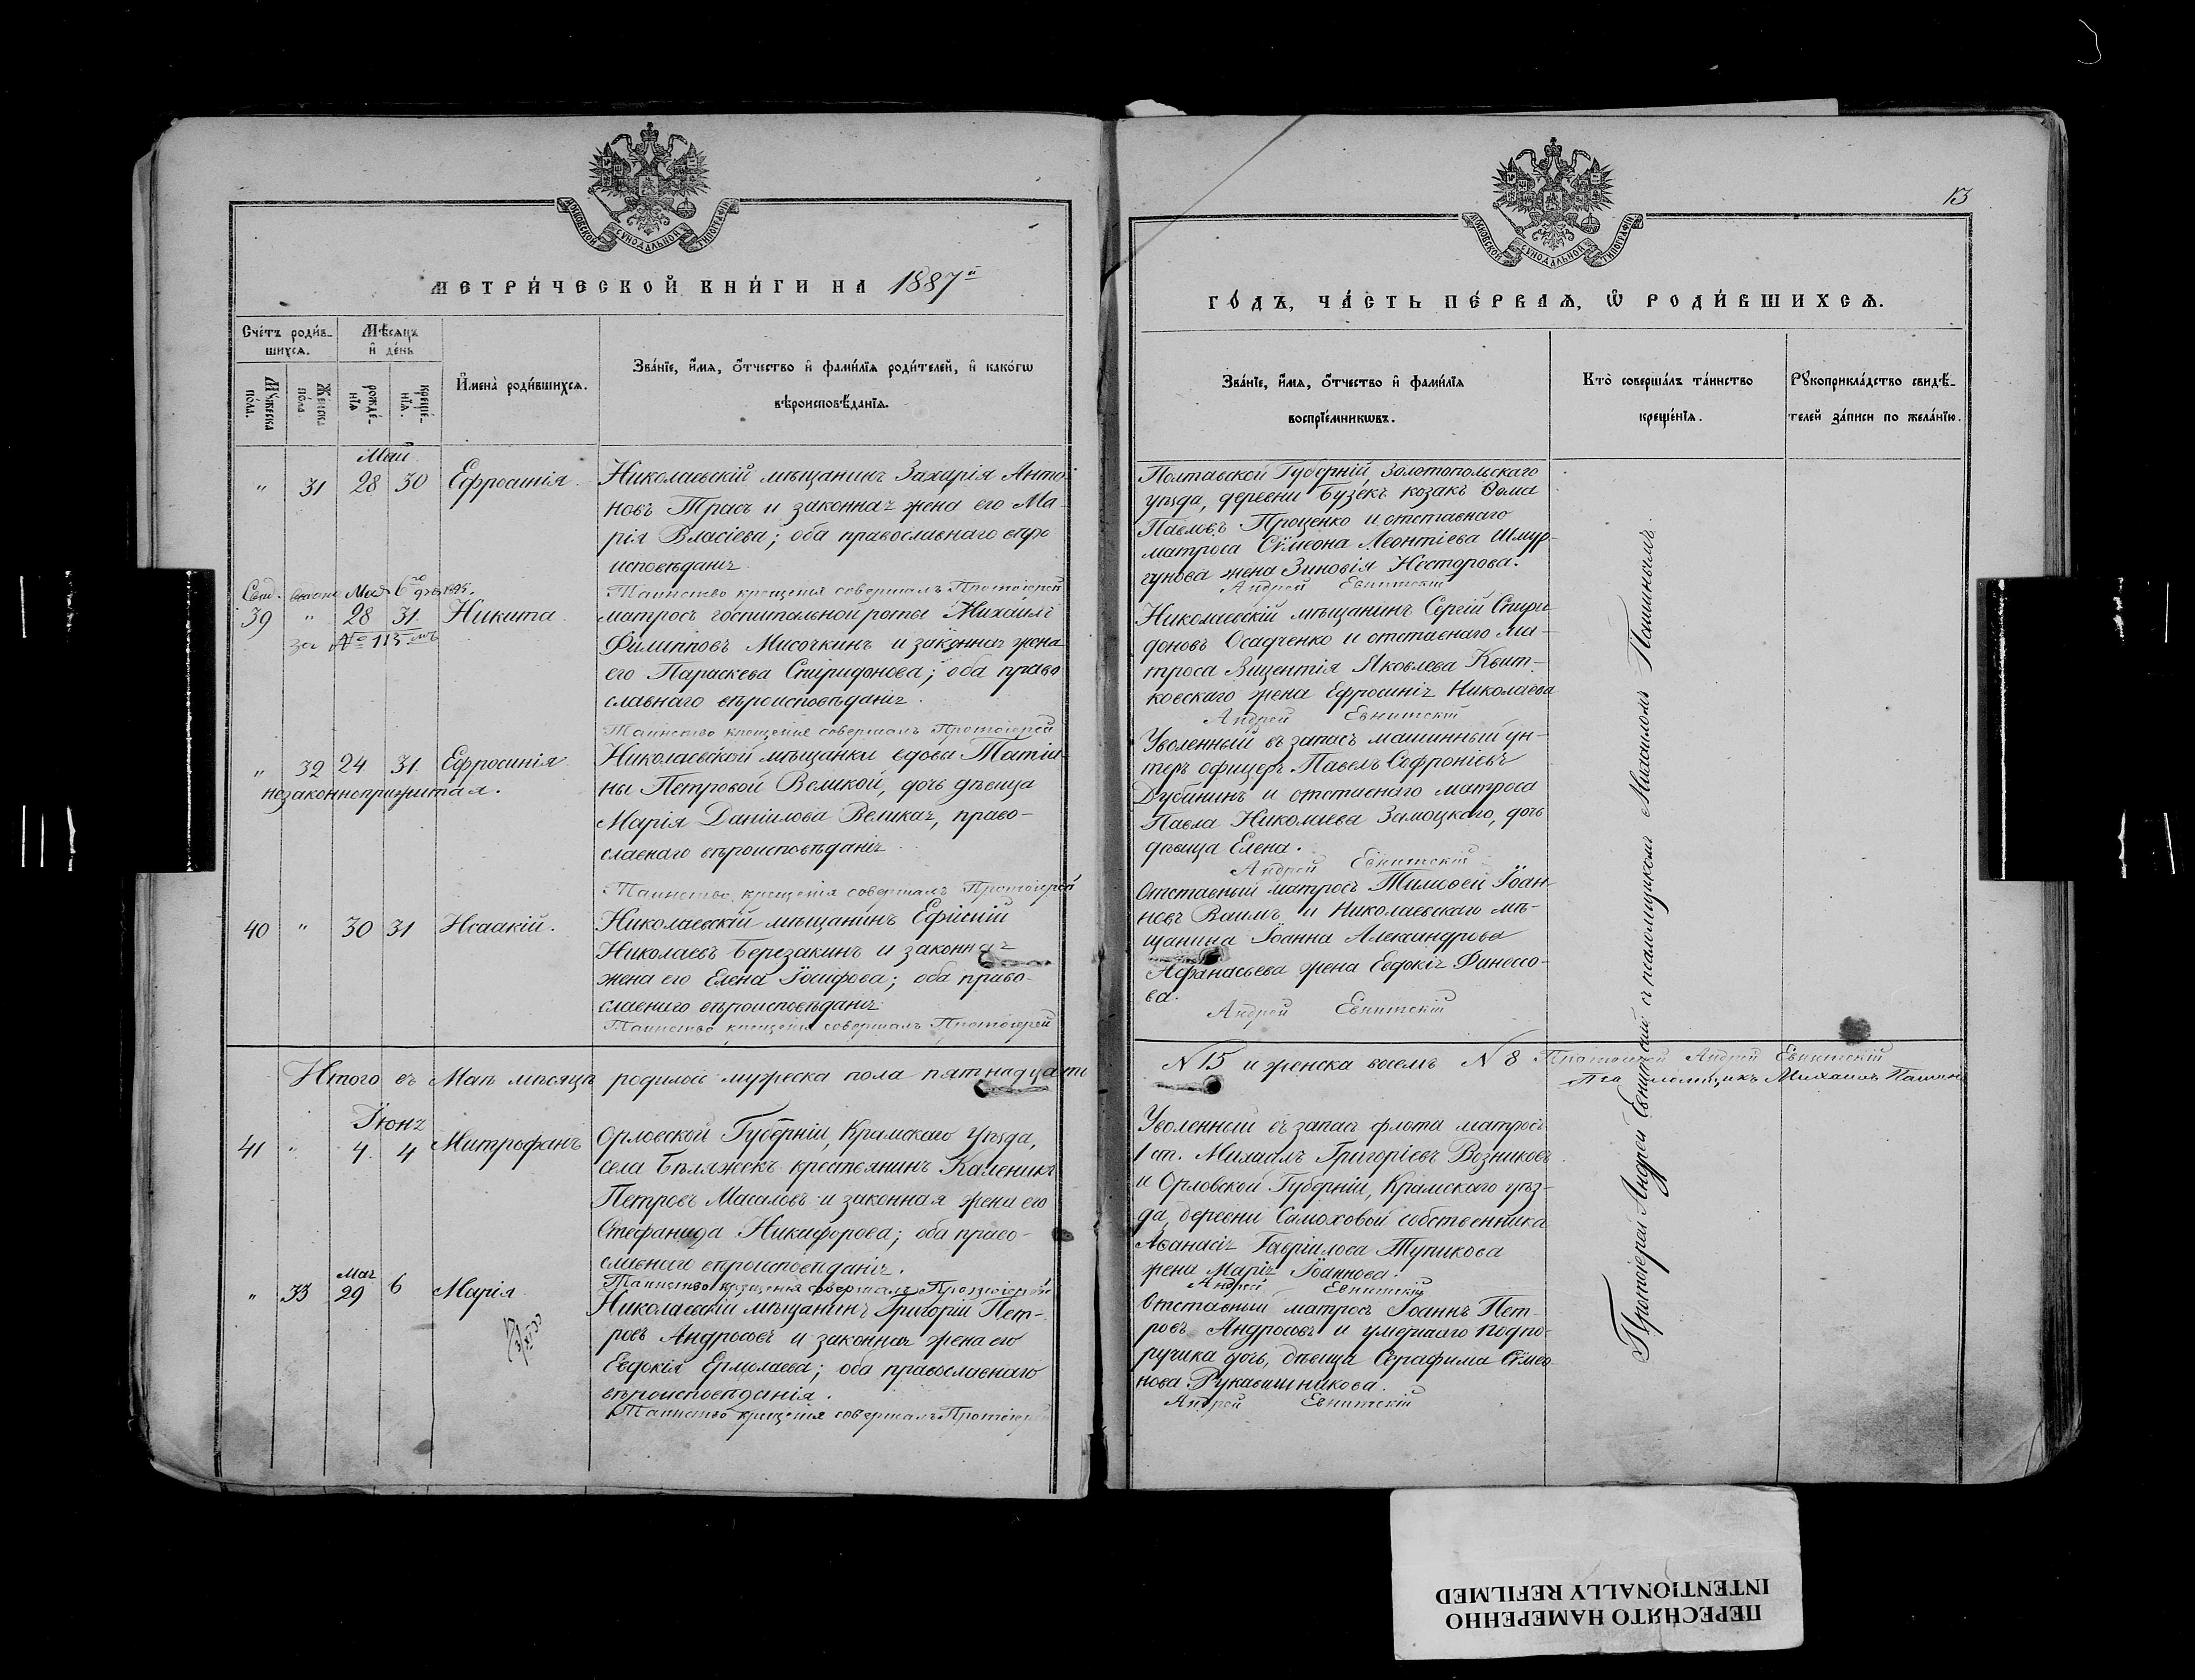 13
МОСКОВСКОЙ СУНОДАЛЬНОЙ ТИПОГРАФІИ
МЕТРИ́ЧЕСКОЙ КНИ́ГИ НА 1887й
Сче́тъ роди́в-
шихся.
Мѣсяцъ
и де́нь
Мꙋжеска по́ла.
Же́нска по́ла.
рожде́-нїя
креще́-нїя.
Имена̀ роди́вшихся.
Зва́нїе, и́мя, о́тчество и фами́лїя роди́телей, и како́гѡ
вѣроисповѣ́данїя.
Май
" 31 28 30 Ефросинія.
Николаевскій мѣщанинъ Захарія Анто
новъ Трасъ и законная жена его Ма-
рія Власіева; оба православнаго вѣро
исповѣданія.
Таинство крещенія совершалъ Протоіерей
39 " 28 31. Никита.
за № 113
матросъ госпитальной роты Михаилъ
Филипповъ Мисочкинъ и законная жена
его Параскева Спиридонова; оба право
славнаго вѣроисповѣданія.
Таинство крещенія совершалъ Протоіерей
" 32 24 31. Ефросинія
незаконноприжитая.
Николаевской мѣщанки вдова Татія-
ны Петровой Великой, дочь дѣвица
Марія Даніилова Великая, право-
славнаго вѣроисповѣданія.
Таинство крещенія совершалъ Протоіерей
40 " 30 31 Исаакій.
Николаевскій мѣщанинъ
Николаевъ Березакинъ и законная
жена его Елена Іосифова; оба право-
славнаго вѣроисповѣданія.
Таинство крещенія совершалъ Протоіерей
Итого въ Маѣ мѣсяцѣ родилось мужеска пола пятнадцать
Іюнь
41 " 4. 4 Митрофанъ
Орловской Губерніи, Крамскаго уѣзда,
села Бѣляжекъ крестьянинъ Каленикъ
Петровъ Масаловъ и законная жена его
Стефанида Никифорова; оба право-
славнаго вѣроисповѣданія.
Таинство крещенія совершалъ Протоіерей
" 33 Мая 29 6 Марія
Николаевскій мѣщанинъ Григорій Пет-
ровъ Андросовъ и законная жена его
Евдокія Ермолаева; оба православнаго
вѣроисповѣданія.
Таинство крещенія совершалъ Протоіерей
МОСКОВСКОЙ СУНОДАЛЬНОЙ ТИПОГРАФІИ
ГО́ДЪ, ЧА́СТЬ ПЕ́РВАЯ, Ѡ РОДИ́ВШИХСЯ.
Зва́нїе, и́мя, о́тчество и фами́лїя
воспрїе́мникѡвъ.
Кто̀ соверша́лъ та́инство
креще́нїя.
Рꙋкоприкла́дство свидѣ́-
телей за́писи по жела́нїю.
Полтавской Губерніи, Золотопольскаго
уѣзда, деревни Бузекъ козакъ Ѳома
Павловъ Проценко и отставнаго
матроса Сѵмеона Леонтіева Шмур-
гунова жена Зиновія Несторова.
Андрей Евнитскій
Николаевскій мѣщанинъ Сергій Спири
доновъ Осадченко и отставнаго ма-
троса Викентія Яковлева Квит-
ковскаго жена Ефросинія Николаева
Андрей Евнитскій
Уволенный въ запасъ машинный ун-
теръ офицеръ Павелъ Софроніевъ
Дубининъ и отставнаго матроса
Павла Николаева Замоцкаго, дочь
дѣвица Елена.
Андрей Евнитскій
Отставный матросъ Тимоѳей Іоан-
новъ Ваимъ и Николаевскаго мѣ-
щанина Іоанна Александрова
Афанасьева жена Евдокія Финессо-
ва.
Андрей Евнитскій
N 15 и женска восемь N 8 Протоіерей Андрей Евнитскій
Псаломщикъ Михаилъ Пашинъ
Уволенный въ запасъ флота матросъ
1 ст. Михаилъ Григоріевъ Возниковъ
и Орловской Губерніи, Крамскаго уѣз-
да, деревни Самоховой собственника
Аѳанасія Гавріилова Тупикова
жена Марія Іоаннова.
Андрей Евнитскій
Отставный матросъ Іоаннъ Пет-
ровъ Андросовъ и умершаго подпо-
ручика дочь, дѣвица Серафима Сѵмео-
нова Рукавишникова.
Андрей Евнитскій
Протоіерей Андрей Евнитскій съ псаломщикомъ Михаиломъ Пашинымъ.
ПЕРЕСНЯТО НАМЕРЕННО
INTENTIONALLY REFILMED